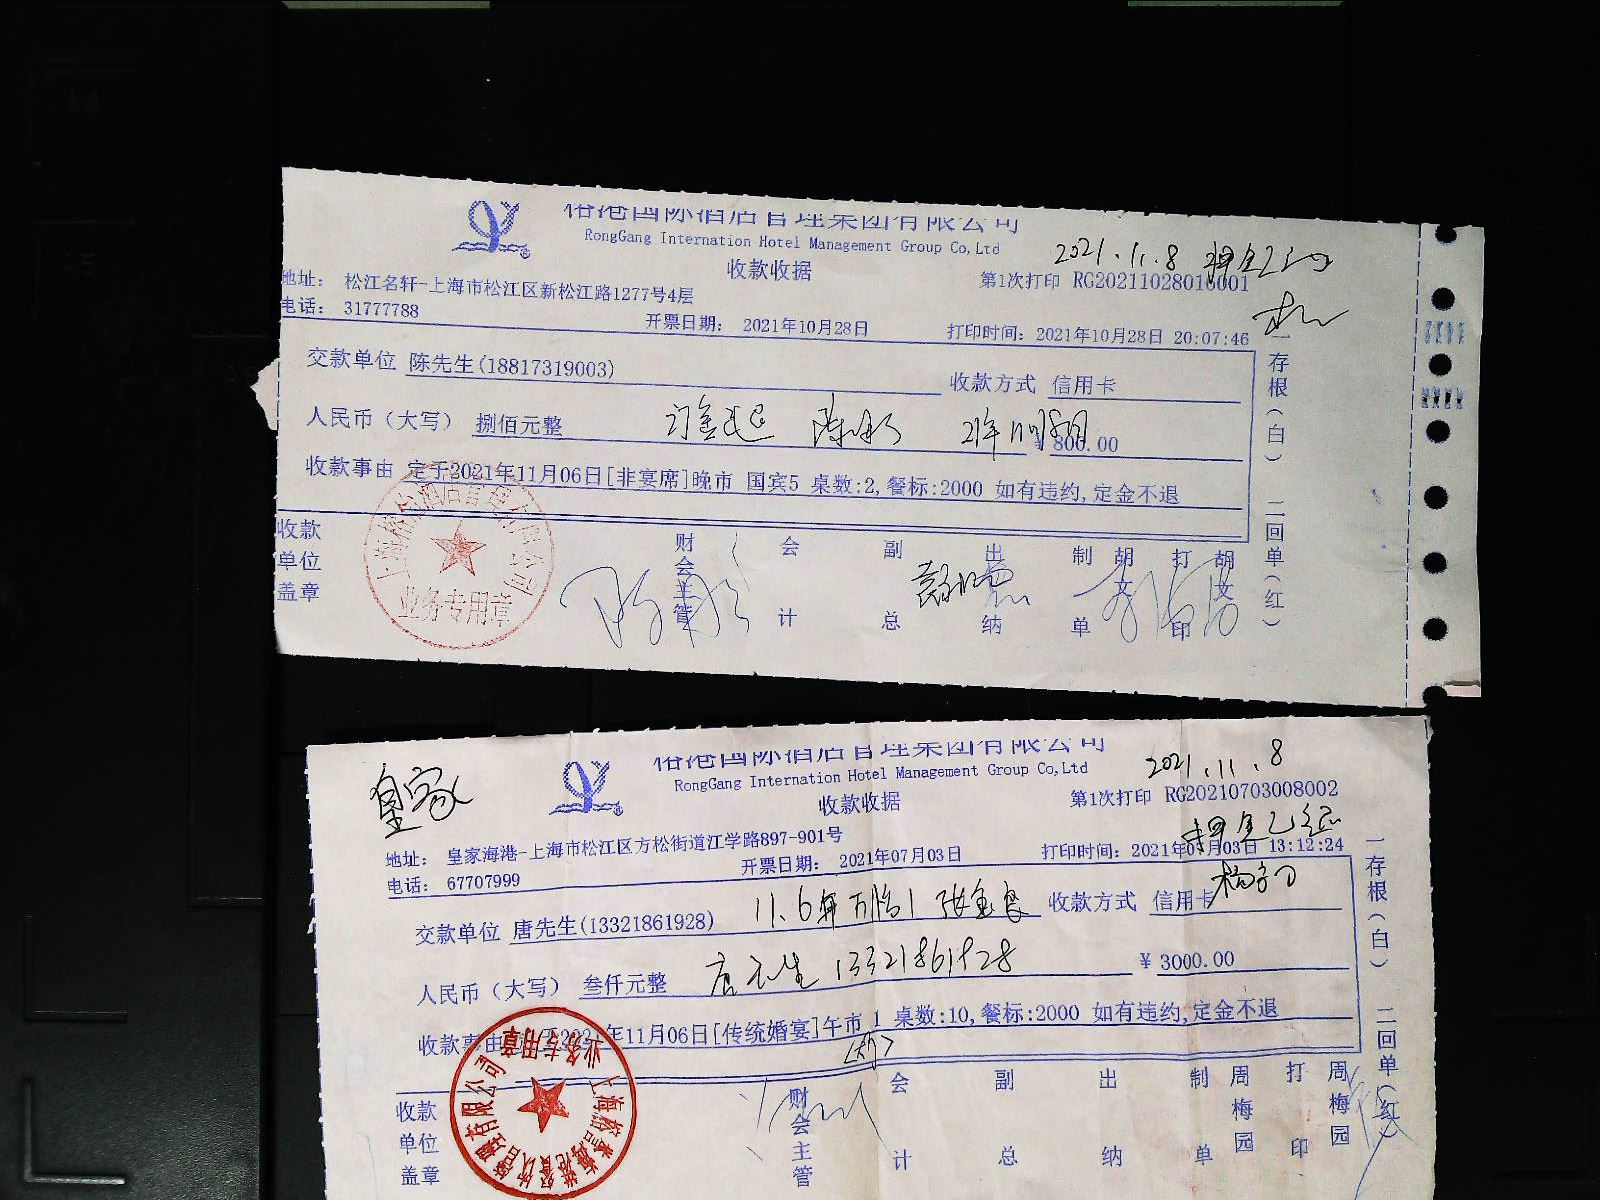 榕港国际酒店管理集团有限公司
RongGang Internation Hotel Management Group Co,Ltd
2021.11.8 押金已
收款收据
第1次打印 RG20211028016001
地址: 松江名轩-上海市松江区新松江路1277号4层
电话: 31777788
开票日期: 2021年10月28日
打印时间: 2021年10月28日 20:07:46
交款单位 陈先生(18817319003)
收款方式 信用卡
人民币(大写) 捌佰元整
订金已退
¥ 800.00
收款事由 定于2021年11月06日[非宴席]晚市 国宾5 桌数:2,餐标:2000 如有违约,定金不退
收款单位盖章
财会主管 会计 副总 出纳 制单 胡文 打印 胡文
一存根(白) 二回单(红)
业务专用章
榕港国际酒店管理集团有限公司
RongGang Internation Hotel Management Group Co,Ltd
皇家
2021.11.8
收款收据
第1次打印 RG20210703008002
押金已
地址: 皇家海港-上海市松江区方松街道江学路897-901号
电话: 67707999
开票日期: 2021年07月03日
打印时间: 2021年07月03日 13:12:24
交款单位 唐先生(13321861928)
11.6
收款方式 信用卡
人民币(大写) 叁仟元整
唐先生 13321861928
¥ 3000.00
收款事由 2021年11月06日[传统婚宴]午市 1 桌数:10,餐标:2000 如有违约,定金不退
收款单位盖章
财会主管 会计 副总 出纳 制单 周梅园 打印 周梅园
一存根(白) 二回单(红)
业务专用章